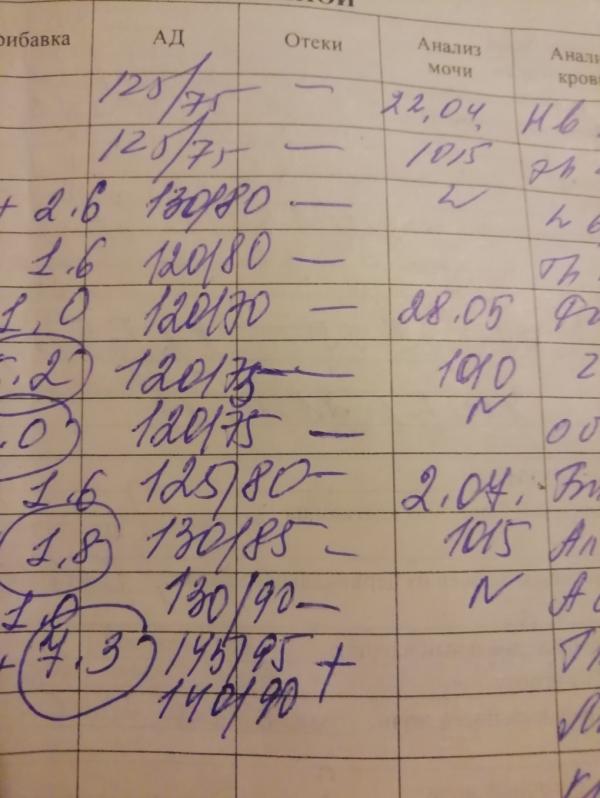 рибавка АД Отеки Анализ мочи Анали кров
125/75 — 22.04. Нв
125/75 — 1015
+ 2.6 130/80 — N
1.6 120/80 —
1.0 120/70 — 28.05
.2 120/75 — 1010
.0 120/75 — N об
1.6 125/80 — 2.07.
1.8 130/85 - 1015 Ал
1.0 130/90 — N Ас
+ 7.3 145/95 +
140/90